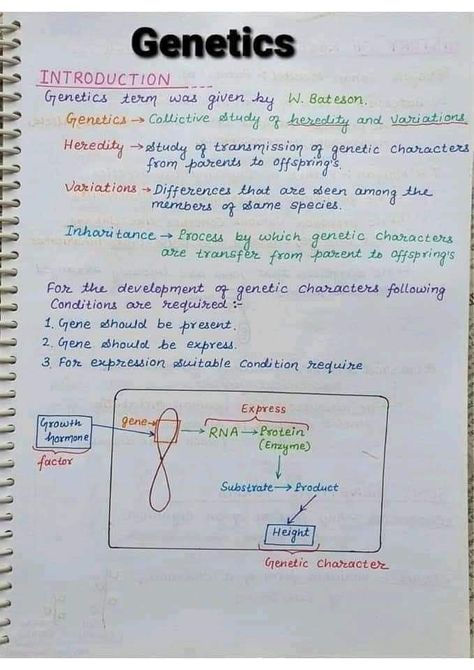 Genetics
INTRODUCTION
Genetics term was given by W. Bateson.
Genetics → Collictive study of heredity and variations
Heredity → study of transmission of genetic characters
from parents to offspring's
Variations → Differences that are seen among the
members of same species.
Inharitance → Process by which genetic characters
are transfer from parent to offspring's
For the development of genetic characters following
Conditions are required :-
1. Gene should be present.
2. Gene should be express.
3. For expression suitable condition require
Express
Growth hormone
gene → RNA → Protein
(Enzyme)
factor
Substrate → Product
Height
Genetic Character